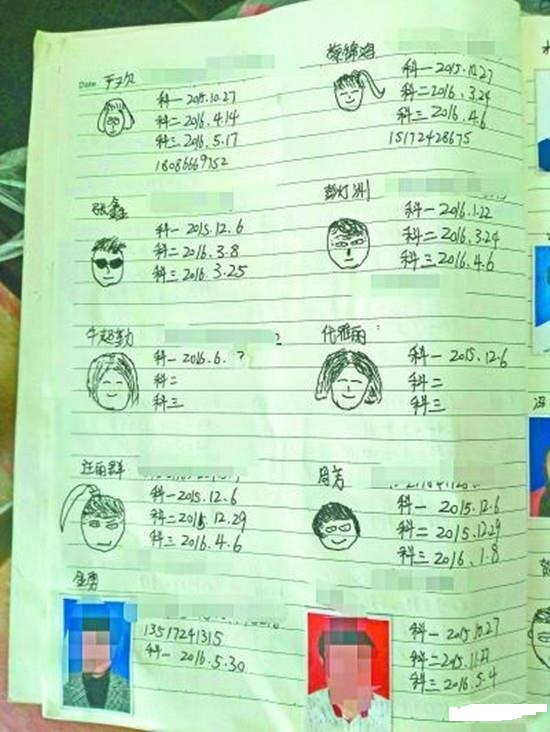 Date
科一 2015.10.27
科二 2016.4.14
科三 2016.5.17
18086669752
科一 2015.10.27
科二 2016.3.24
科三 2016.4.6
15172428675
张鑫
科一 2015.12.6
科二 2016.3.8
科三 2016.3.25
彭灯洲
科一 2016.1.22
科二 2016.3.24
科三 2016.4.6
牛起勤
科一 2016.6.7
科二
科三
代雅丽:
科一 2015.12.6
科二
科三
汪丽群
科一 2015.12.6
科二 2015.12.29
科三 2016.4.6
周芳
科一 2015.12.6
科二 2015.12.29
科三 2016.1.8
金勇
13517241315
科一 2016.5.30
科一 2015.10.27
科二 2015.11.27
科三 2016.5.4